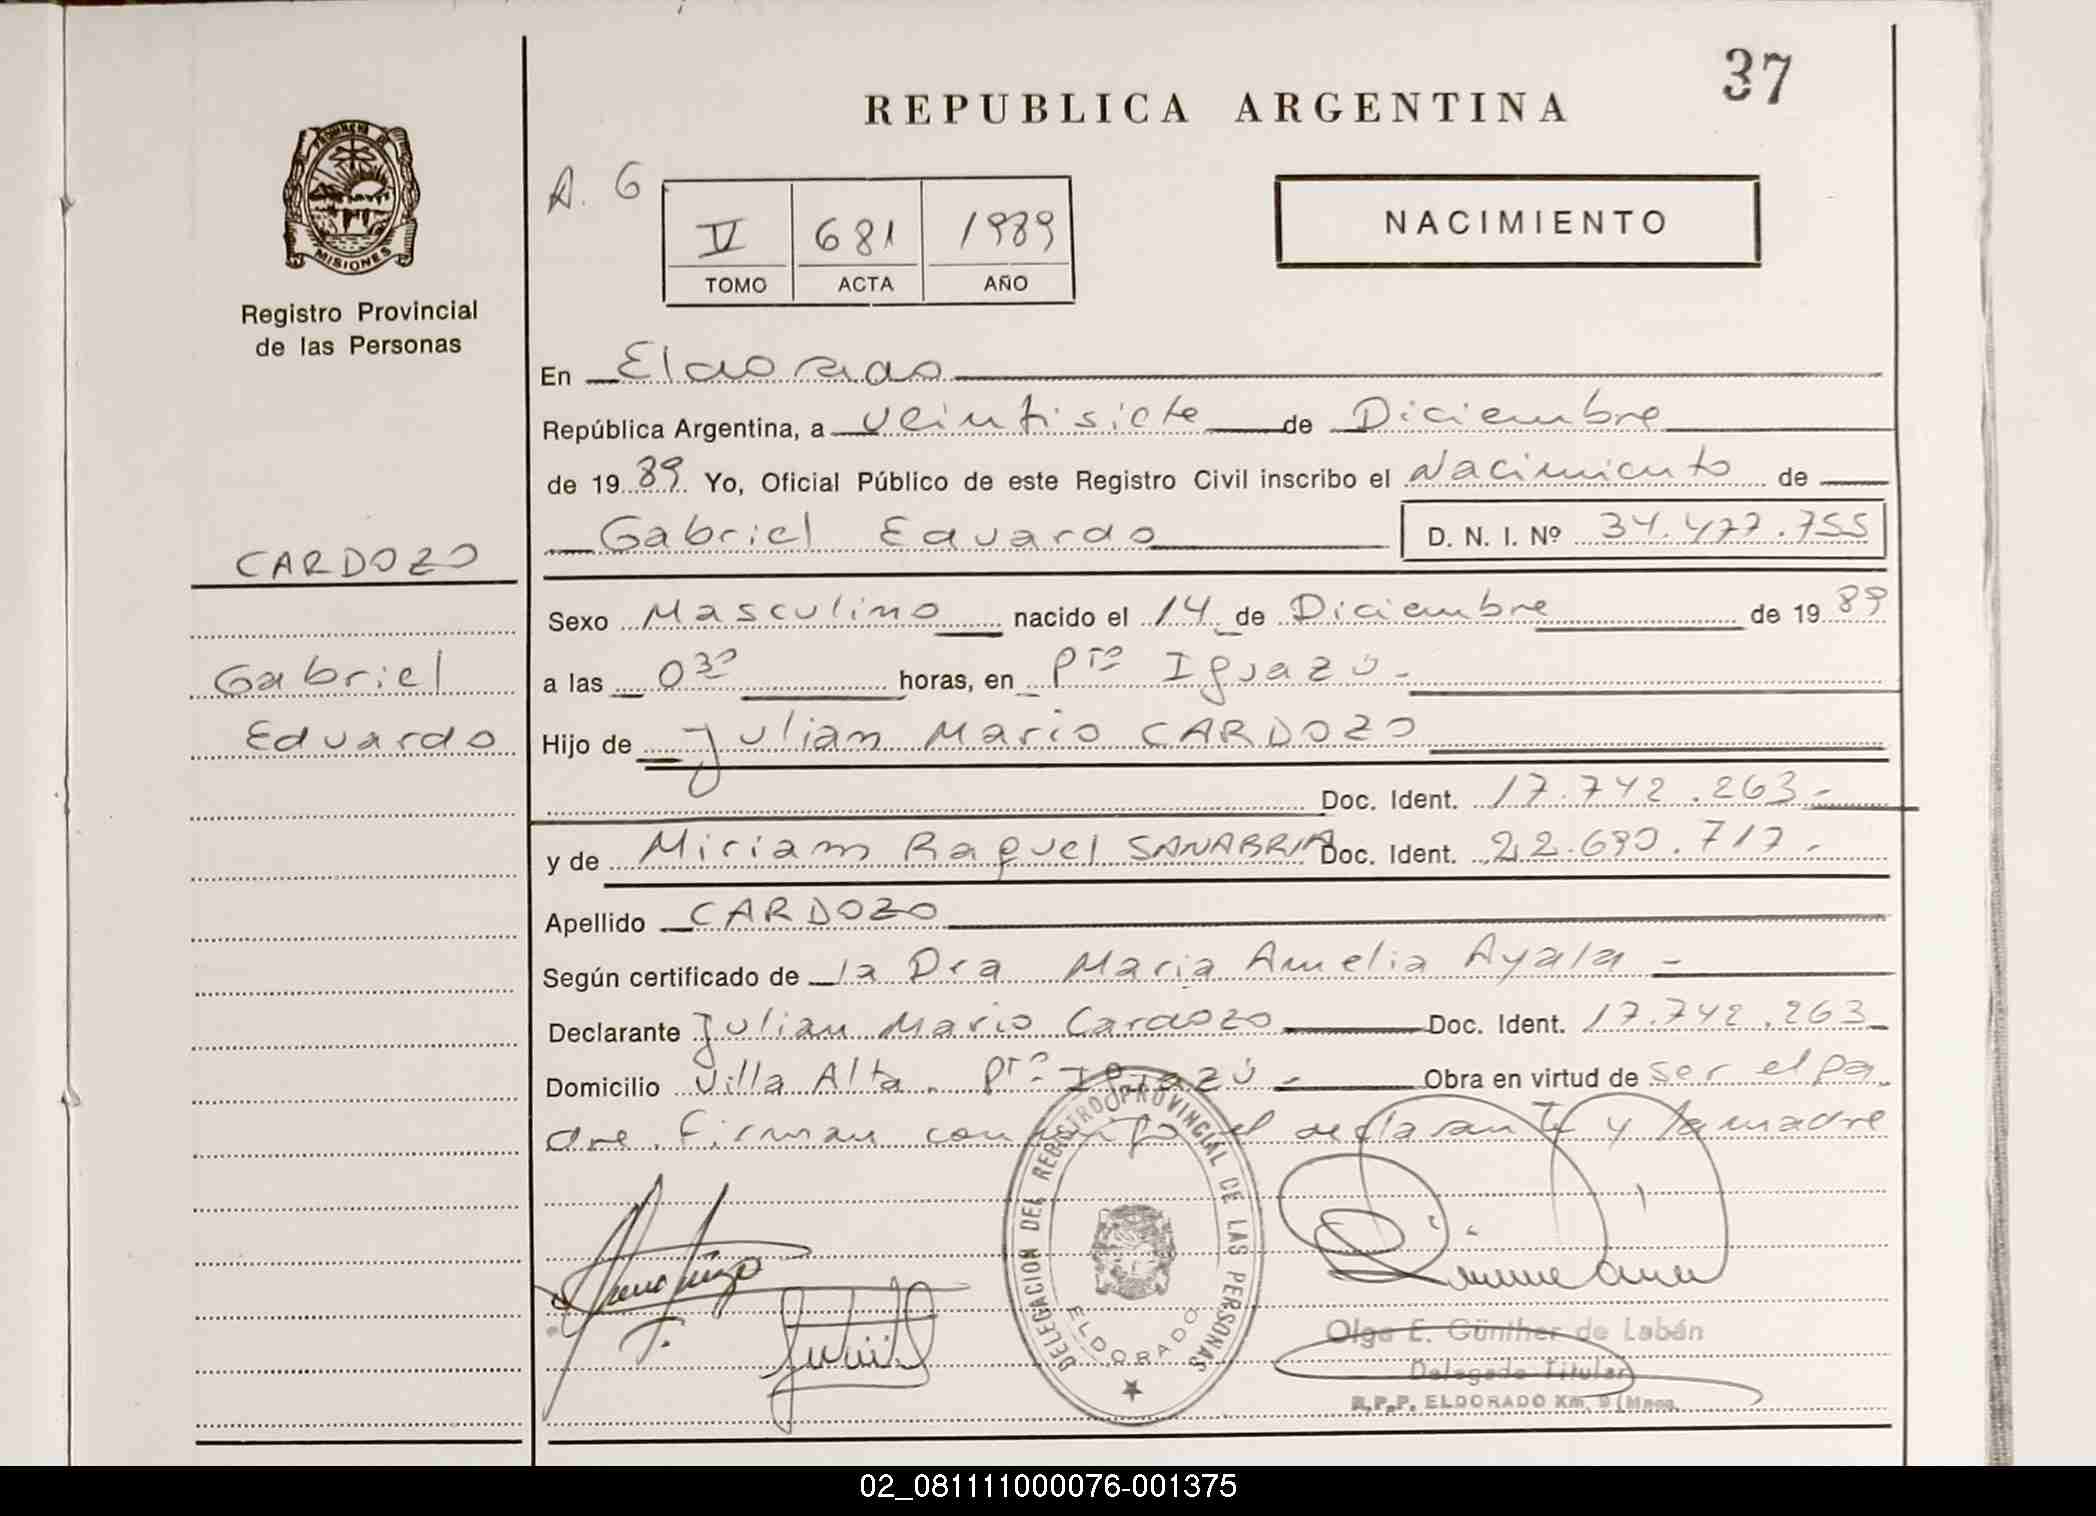 37
REPUBLICA ARGENTINA
PROVINCIA DE
MISIONES
Registro Provincial
de las Personas
A. G
V 681 1989
TOMO ACTA AÑO
NACIMIENTO
En Eldorado
República Argentina, a veintisiete de Diciembre
de 1989 Yo, Oficial Público de este Registro Civil inscribo el Nacimiento de
Gabriel Eduardo D. N. I. Nº 34.477.755
CARDOZO
Gabriel
Eduardo
Sexo Masculino nacido el 14 de Diciembre de 1989
a las 03º horas, en Ptº Iguazú -
Hijo de Julian Mario CARDOZO
Doc. Ident. 17.742.263 -
y de Miriam Raquel SANABRIA Doc. Ident. 22.690.717 -
Apellido CARDOZO
Según certificado de la Dra Maria Amelia Ayala -
Declarante Julian Mario Cardozo Doc. Ident. 17.742.263
Domicilio Villa Alta. Ptº Iguazú - Obra en virtud de ser el pa
dre. Firman conmigo el declarante y la madre
DELEGACION DEL REGISTRO PROVINCIAL DE LAS PERSONAS
ELDORADO
Olga E. Günther de Labán
Delegado Titular
R.P.P. ELDORADO Km. 9 (Mnes.
02_081111000076-001375